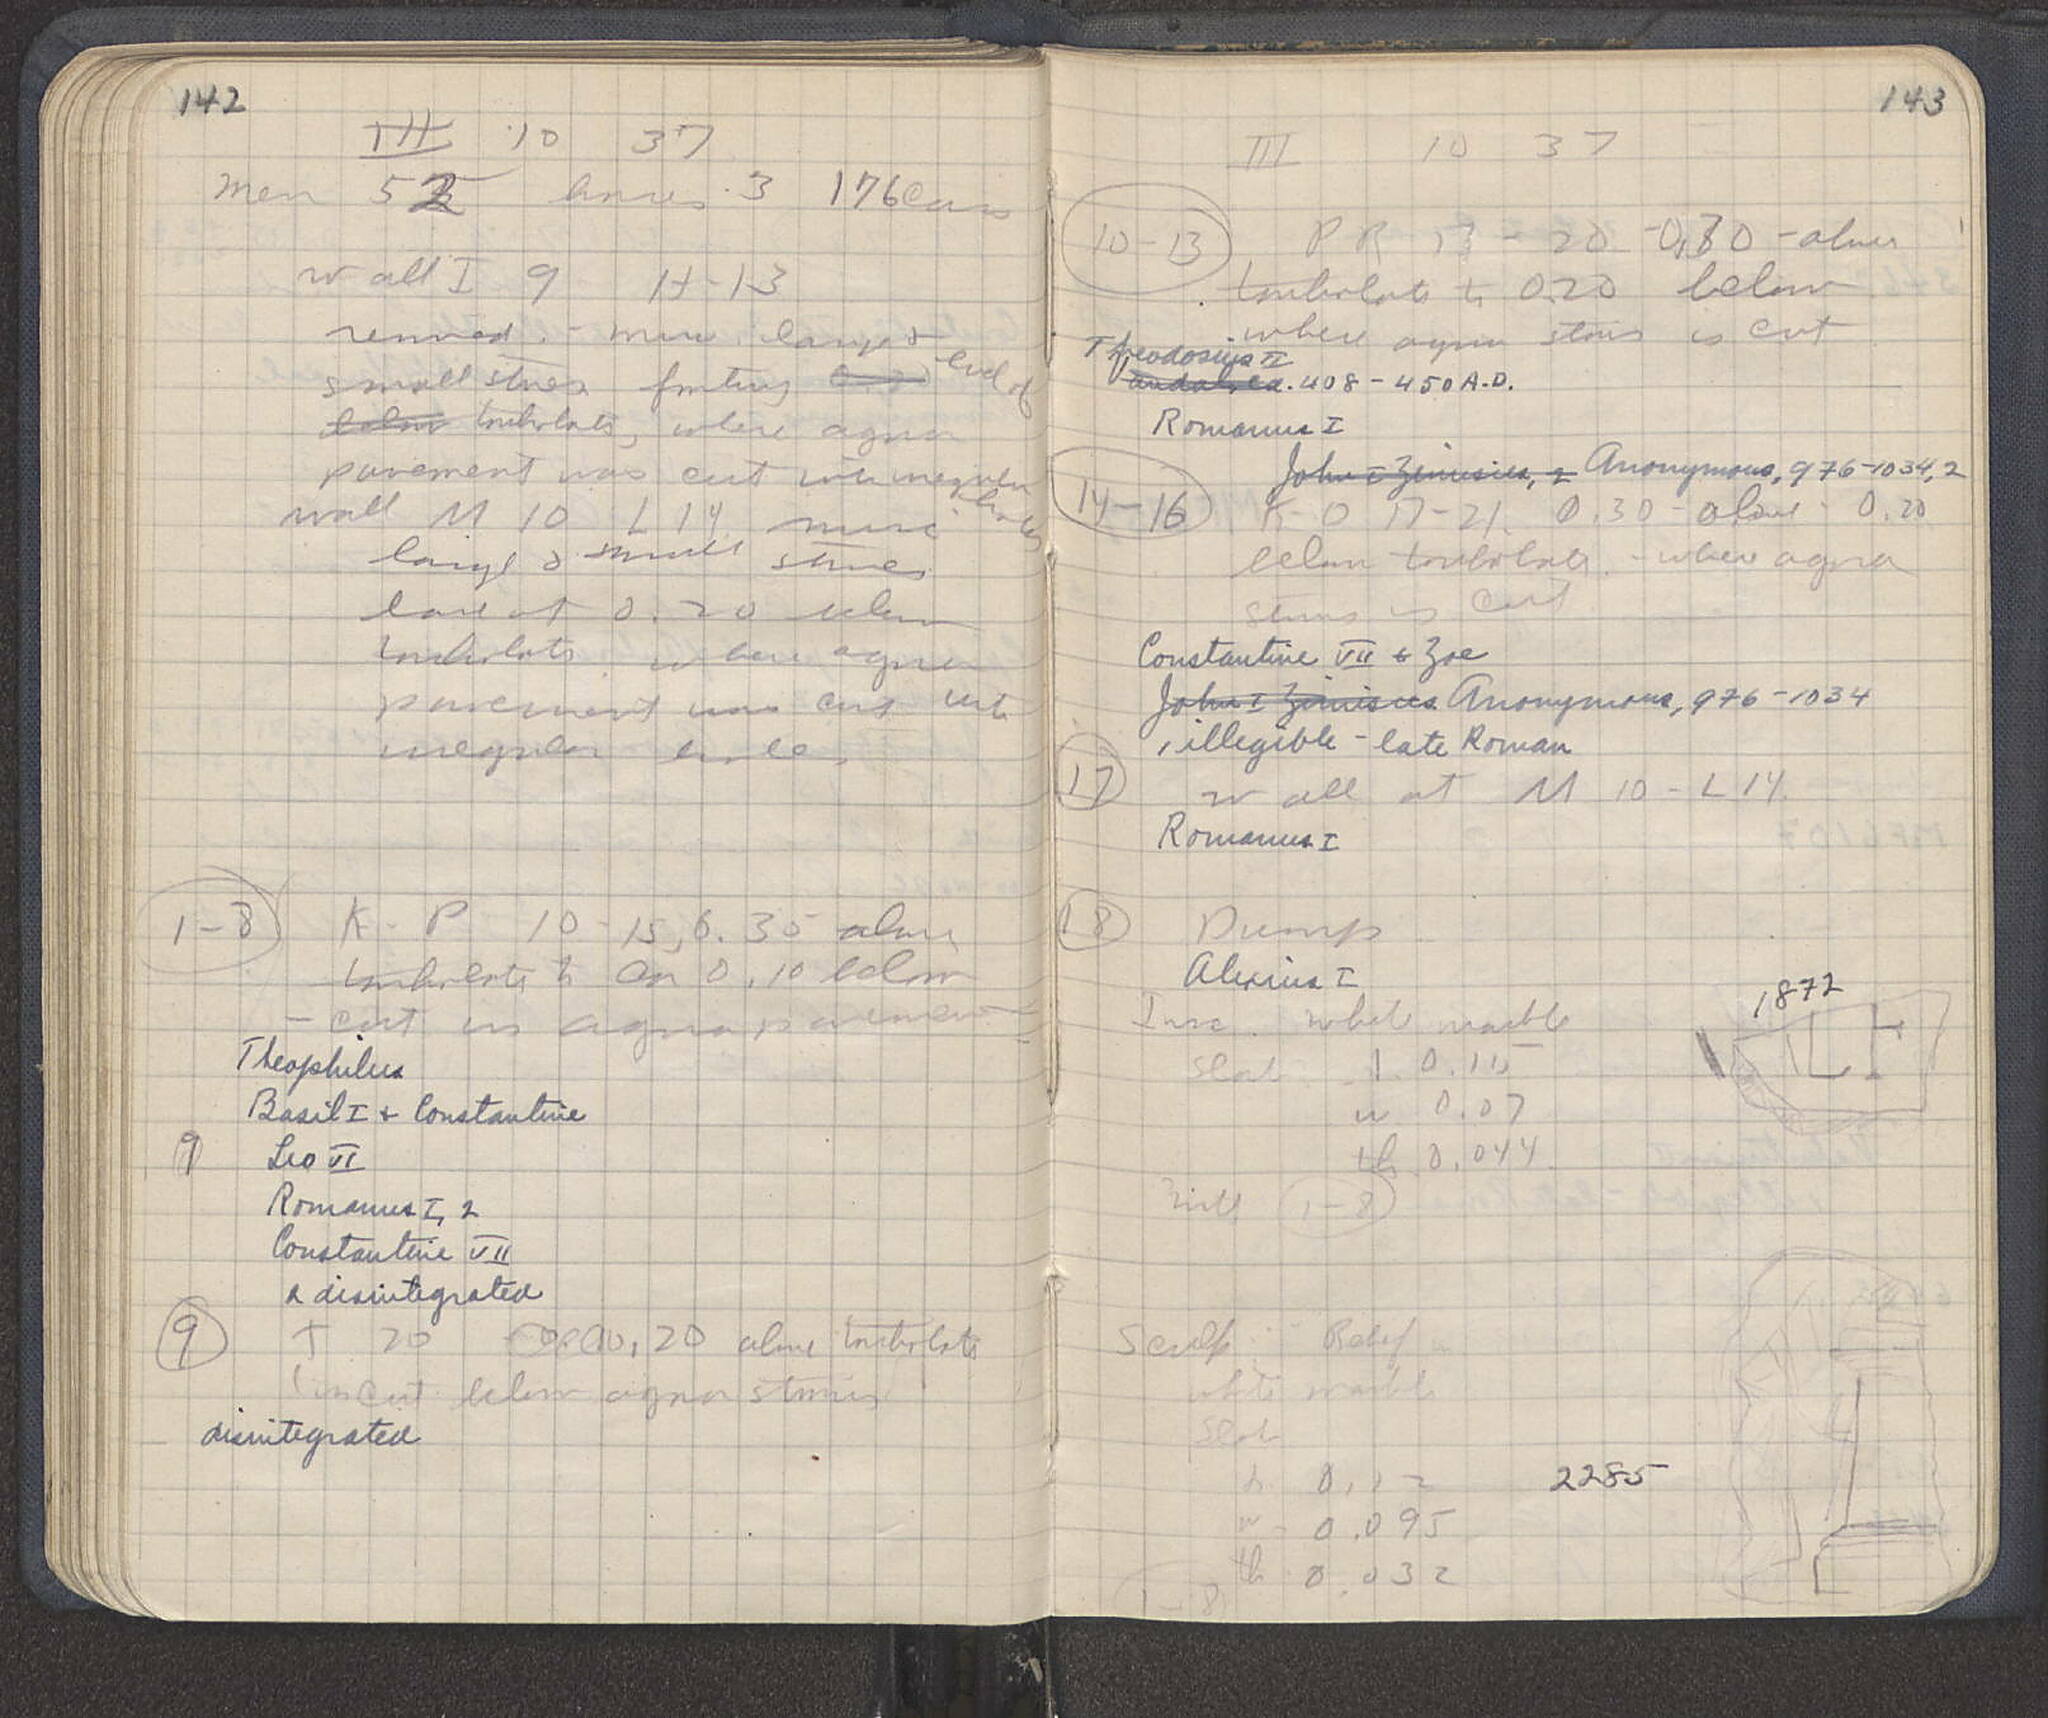 142
III 10 37
Men 52 horses 3 176 cars
wall I 9 H-13
removed. - more large &
small stones footing level of
below toichobate, where agora
pavement was cut into irregular
holes
wall M 10 L 14 more
large & small stones
base at 0.20 below
toichobate where agora
pavement was cut into
irregular hole.
1-8 K-P 10-15, 0.35 above
toichobate to 0.10 below
- cut in agora pavement
Theophilus
Basil I & Constantine
9 Leo VI
Romanus I, 2
Constantine VII
2 disintegrated
9 T 20 0.20 above toichobate
in cut below agora stones
disintegrated
143
III 10 37
10-13 P R 13-20 -0.30-above
toichobate to 0.20 below
where agora stones is cut
Theodosius II
408-450 A.D.
Romanus I
John I Zimisces, 2 Anonymous, 976-1034, 2
14-16 K-O 17-21 0.30-above-0.20
below toichobate. - where agora
stones is cut
Constantine VII & Zoe
John I Zimisces Anonymous, 976-1034
1 illegible - late Roman
17 wall at M 10-L 14.
Romanus I
18 Dump
Alexius I
Insc. white marble
1872
slab l. 0.115
w 0.07
th. 0.044
with 1-8
Sculp. Relief
white marble
slab
h 0.12
2285
w- 0.095
th 0.032
1-8